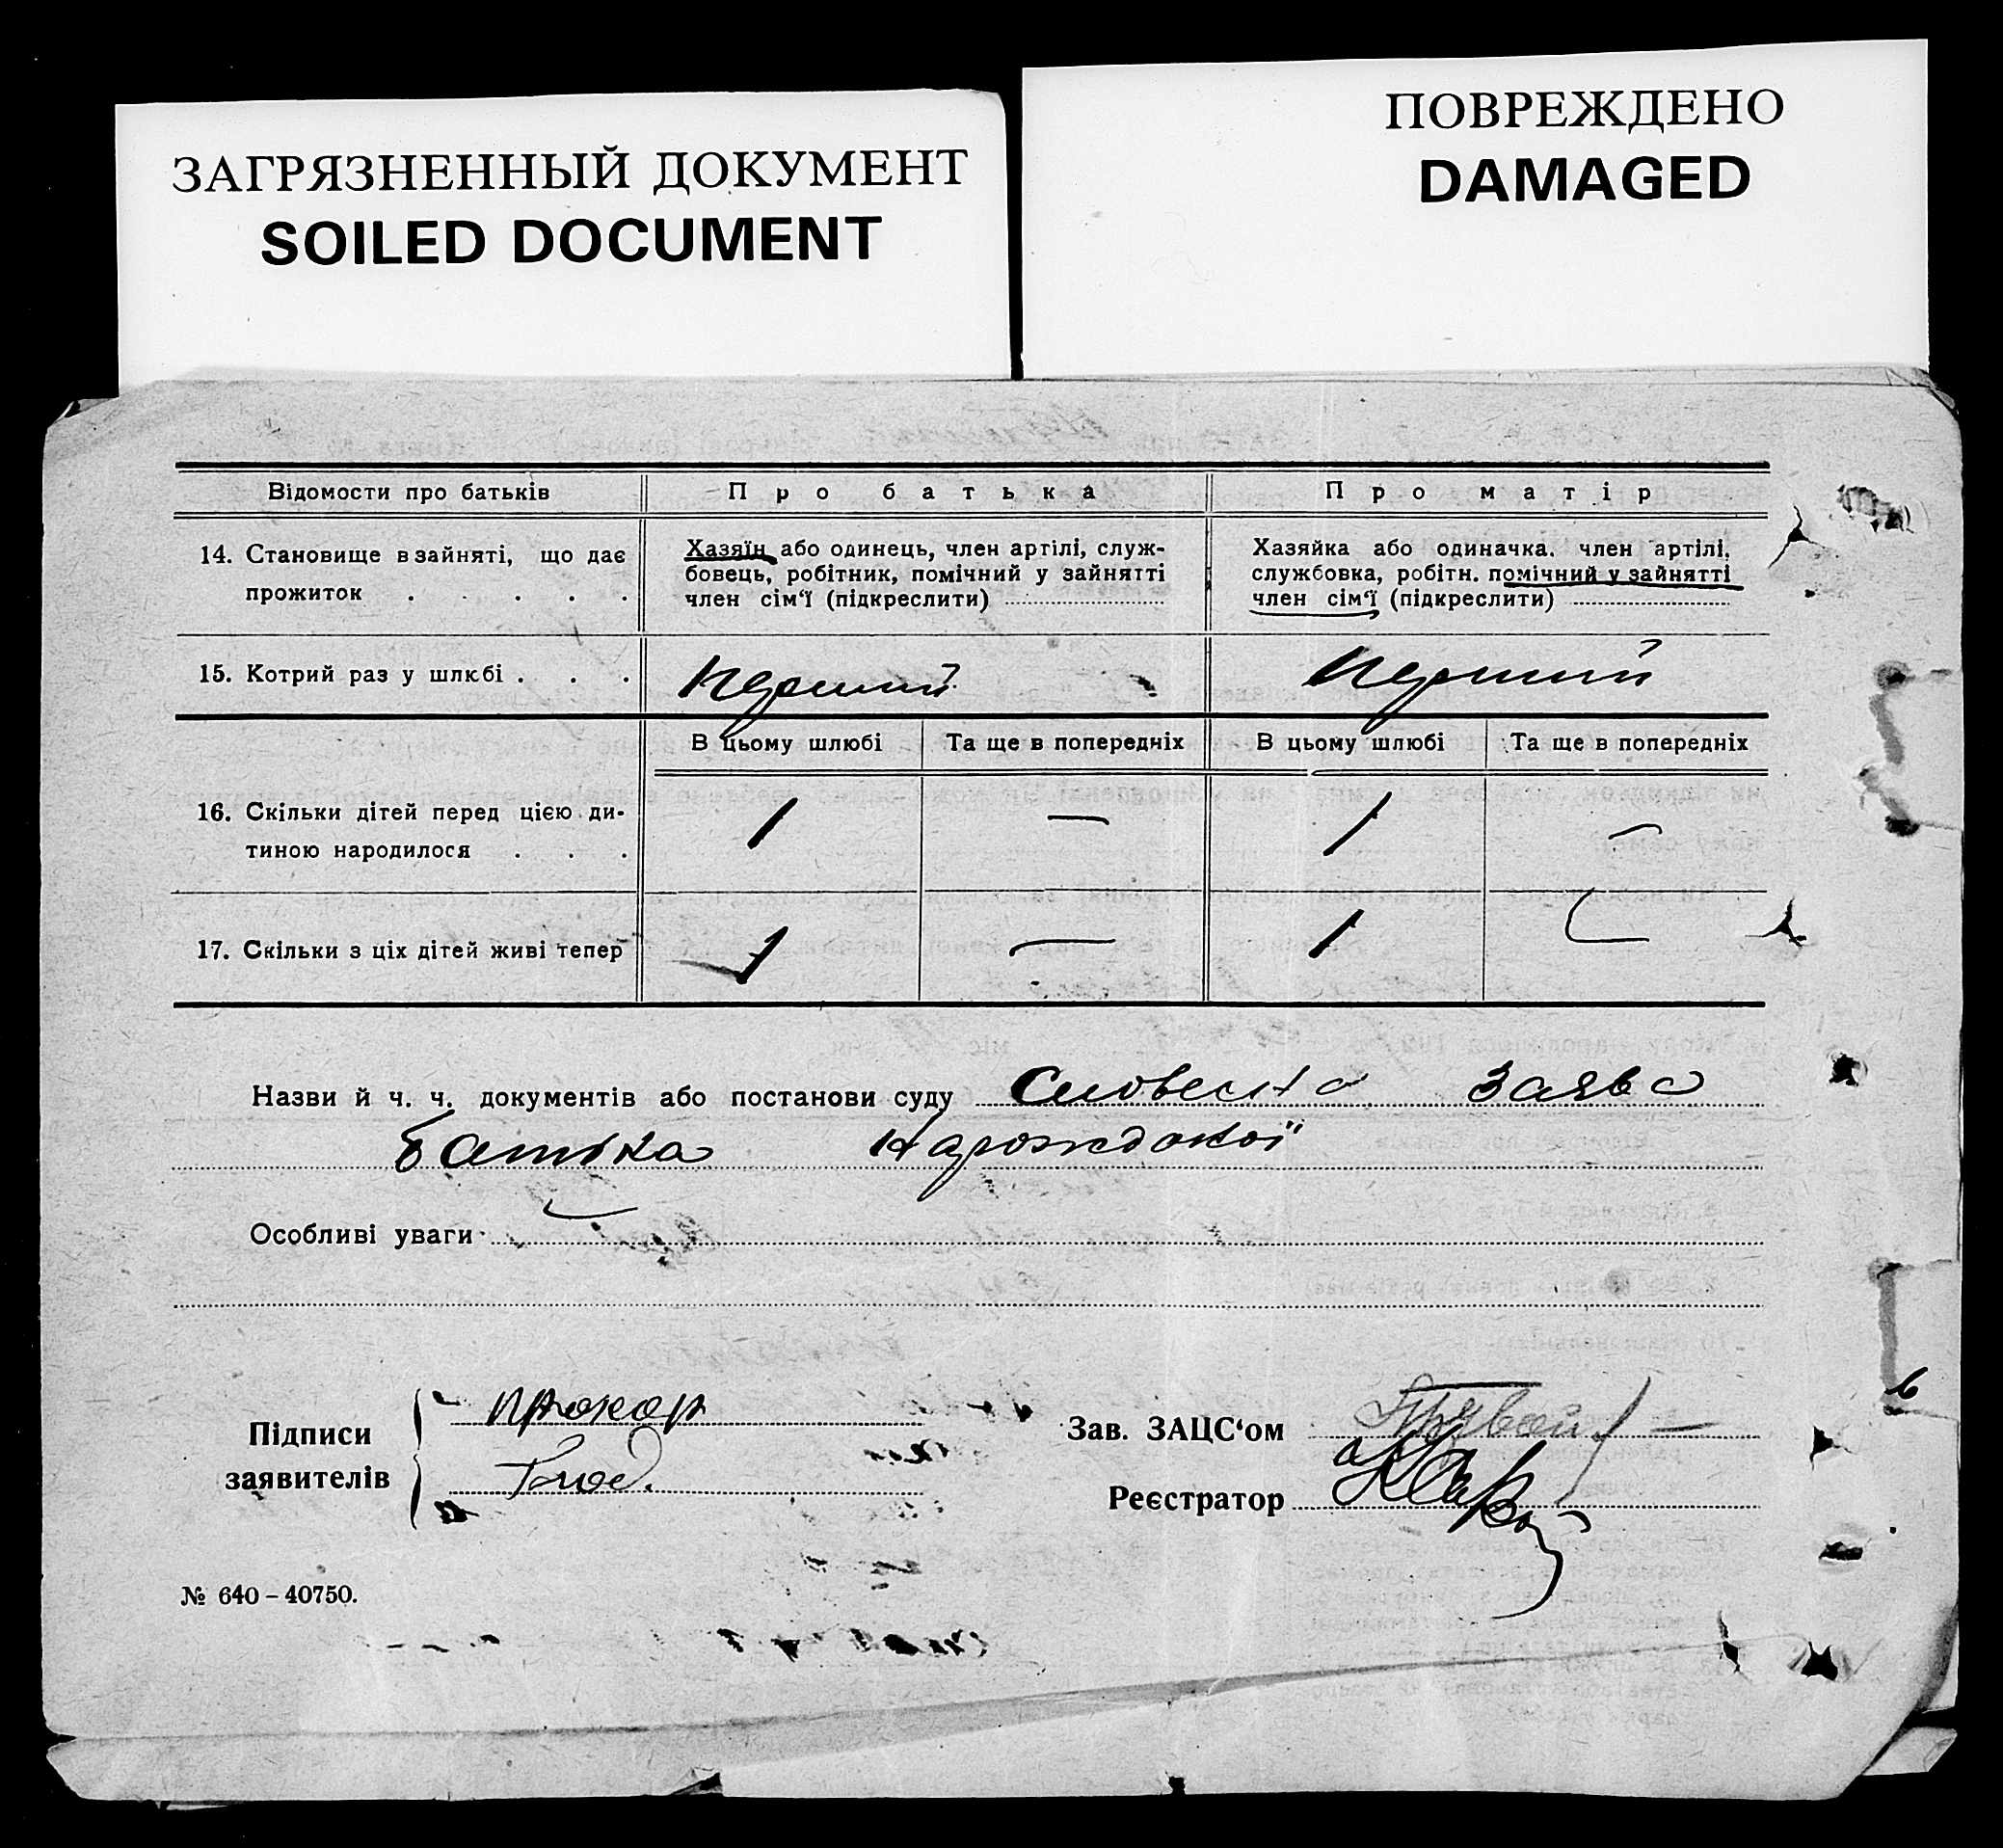 ЗАГРЯЗНЕННЫЙ ДОКУМЕНТ
SOILED DOCUMENT
ПОВРЕЖДЕНО
DAMAGED
Відомости про батьків Про батька Про матір
14. Становище в зайняті, що дає прожиток . . . . .
Хазяїн або одинець, член артілі, служ-
бовець, робітник, помічний у зайнятті
член сім'ї (підкреслити)
Хазяйка або одиначка. член артілі,
службовка, робітн. помічний у зайнятті
член сім'ї (підкреслити)
15. Котрий раз у шлюбі . . . Перший Перший
В цьому шлюбі Та ще в попередніх В цьому шлюбі Та ще в попередніх
16. Скільки дітей перед цією ди-
тиною народилося . . . 1 — 1 —
17. Скільки з ціх дітей живі тепер 1 — 1 —
Назви й ч. ч. документів або постанови суду Словесна Заява
батька
Особливі уваги
Підписи
заявителів
Зав. ЗАЦС'ом
Реєстратор
№ 640 – 40750.